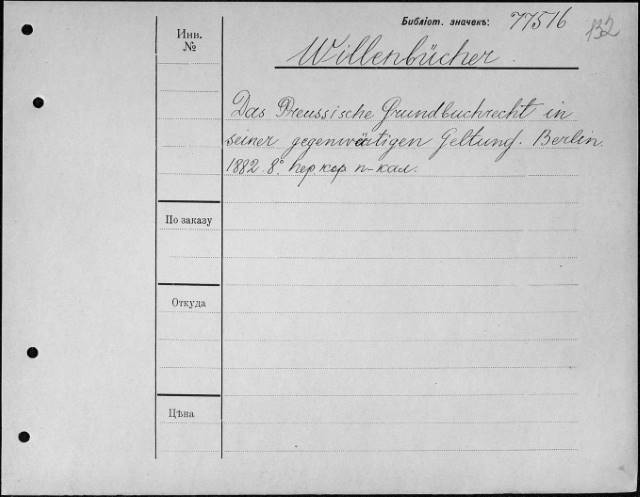 Библіот. значекъ: 77516
132
Инв.
№
Willenbücher.
Das Preussische Grundbuchrecht in
seiner gegenwärtigen Geltung. Berlin
1882. 8º. пер кор п-кал.
По заказу
Откуда
Цѣна